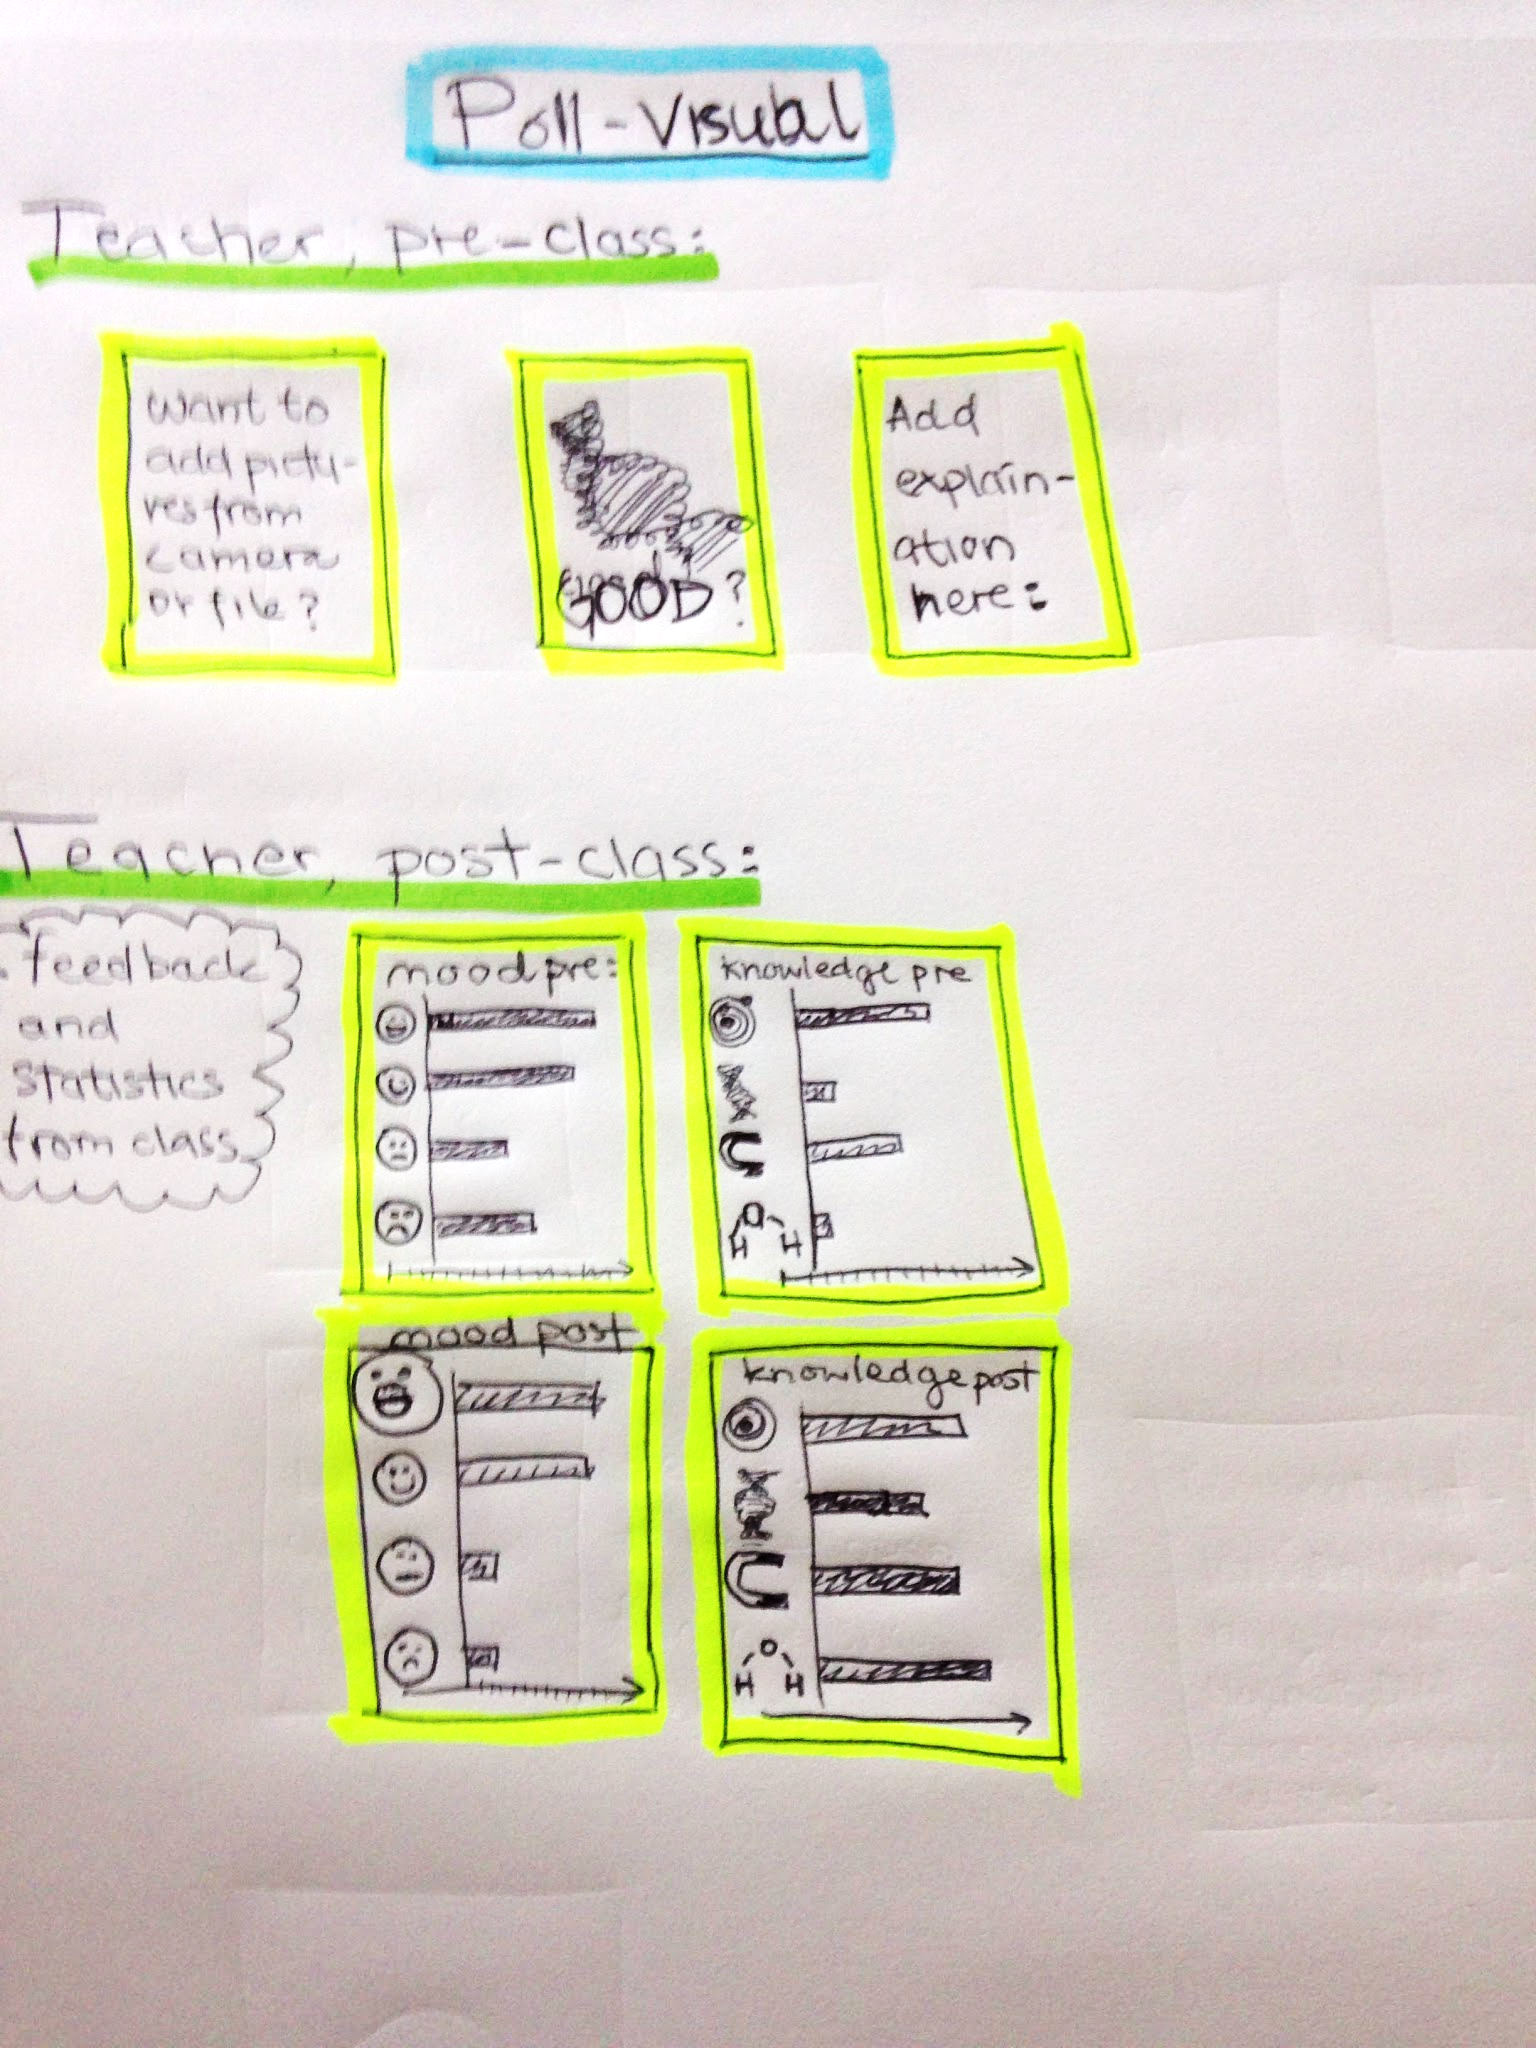 Poll-Visual
Teacher, pre-class:
Want to
add pictu-
res from
camera
or file?
GOOD?
Add
explain-
ation
here:
Teacher, post-class:
feedback
and
statistics
from class
mood pre:
knowledge pre
O
H H
mood post
knowledge post
O
H H